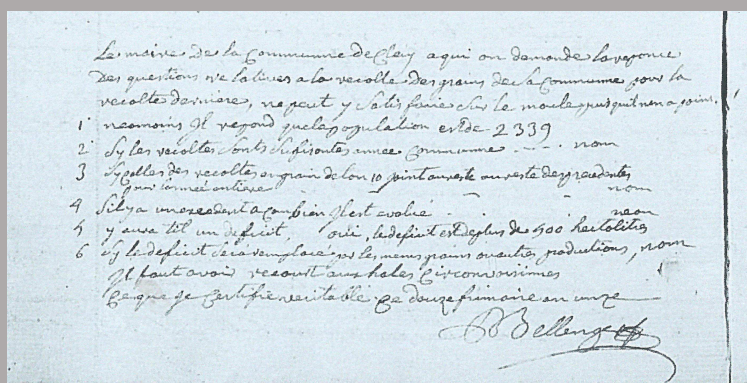 Le maire de la Commune de Clery a qui on demande la reponce
Des questions relatives a la recolte Des grains de sa Commune pour la
recolte derniere, ne peut y satisfaire sur le moule puisquil nen a point.
1 neomoins Il repond que la population est de 2339
2 Sy les recoltes sont sufisentes annee Commune - - - - non
3 Sy celles des recoltes en grain de lon 10 joint au reste au reste des precedentes
pour lannee entiere non
4 Sil y a un excedent a combien Il est evalué non
5 y aura til un deficit, oui, le deficit est de plus de 400 hectolitres
6 Sy le deficit sera remplacé par les menus grains ou autres productions, non
Il faut avoir recourt aux hales Circonvoisinnes
Ce que je Certifie veritable Ce douze frimaire an onze
Bellenger